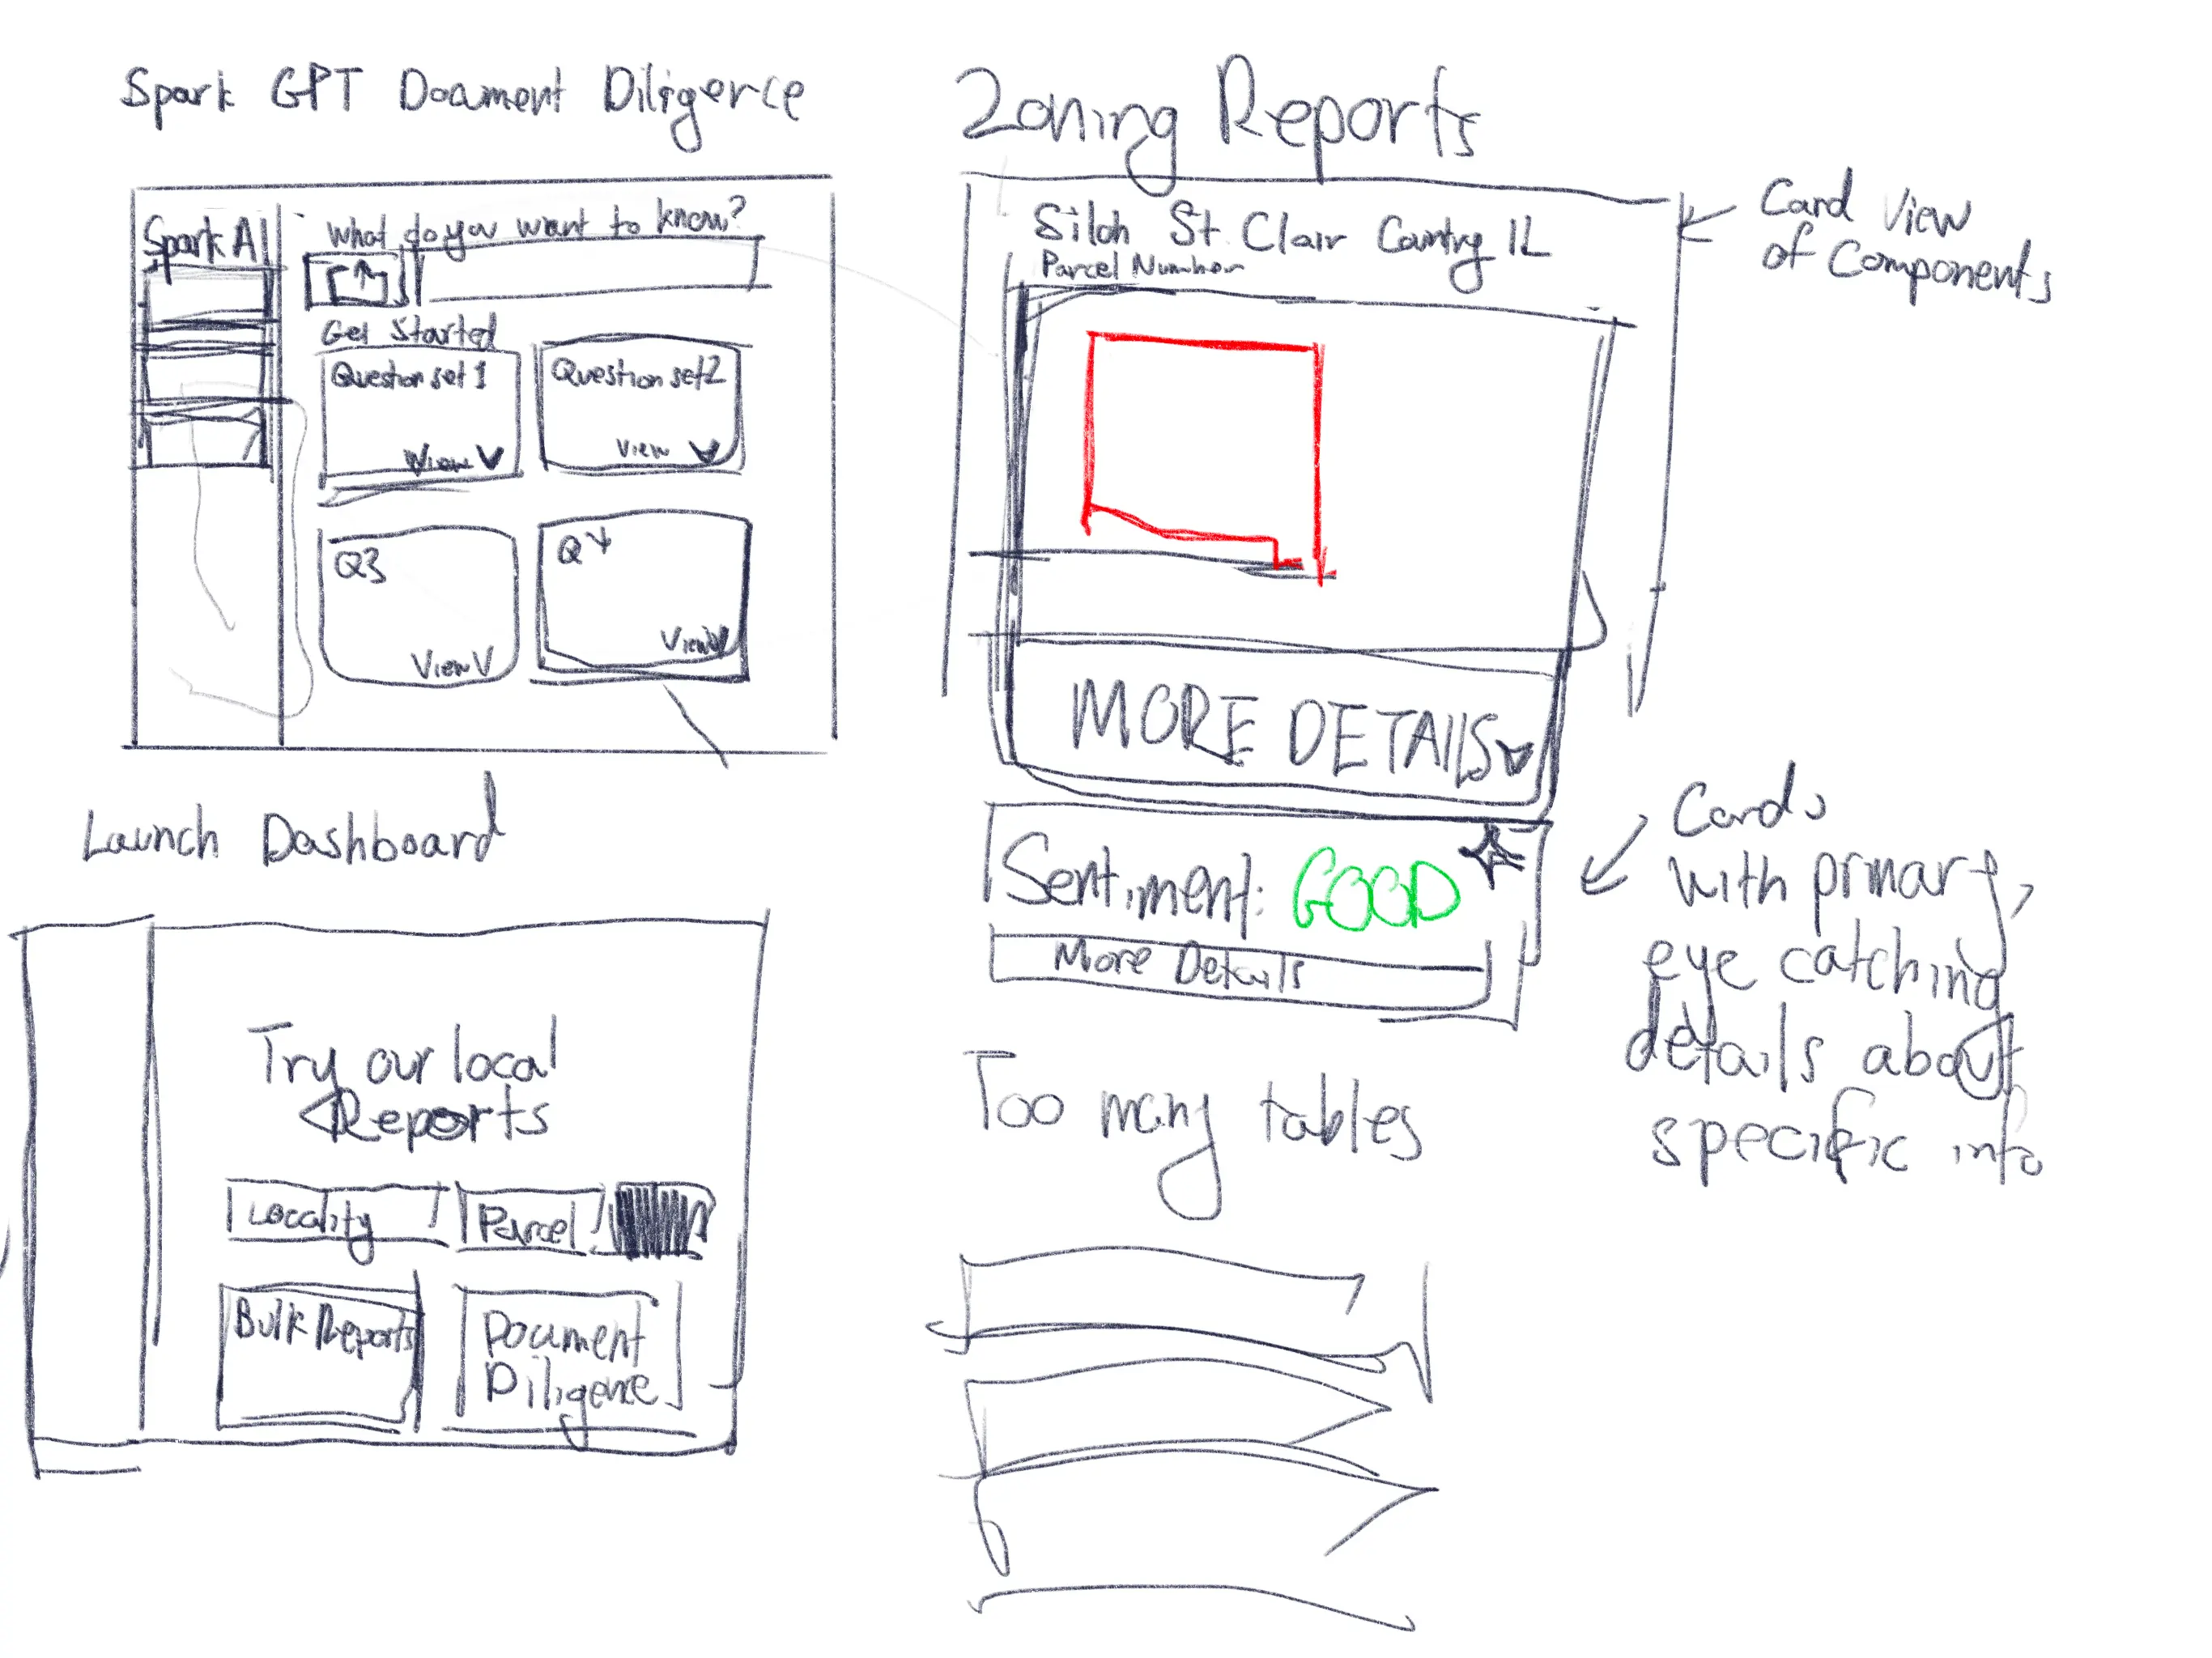 Spark GPT Document Diligence
Spark AI
What do you want to know?
Get Started
Question set 1
View
Question set 2
View
Q3
View
Q4
View
Launch Dashboard
Try our local
Reports
Locality
Parcel
Bulk Reports
Document
Diligence
Zoning Reports
Siloh St. Clair County IL
Parcel Number
MORE DETAILS
Sentiment: GOOD
More Details
Too many tables
Card View
of Components
Cards
with primary,
eye catching
details about
specific info